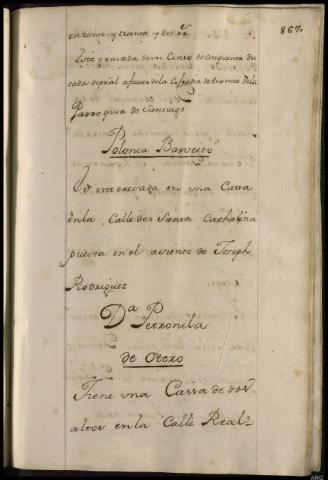 867.
en renta y treinta y dos rs
Esta gravada de un Censo de cinquenta du
cados de pral a favor de la Cofradia de Animas de la
Parroquia de Santiago
Polonia Barveito
Es interesada en una Cassa
en la Calle de Santa Cathalina
puesta en el asiento de Joseph
Rodriguez
Da Petronila
de Otero
Tiene una Cassa de dos
altos en la Calle Real